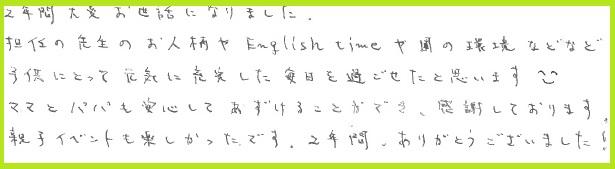 2年間大変お世話になりました.
担任の先生のお人柄やEnglish timeや園の環境などなど
子供にとって元気に充実した毎日を過ごせたと思います
ママとパパも安心してあずけることができ、感謝しております
親子イベントも楽しかったです。2年間、ありがとうございました!